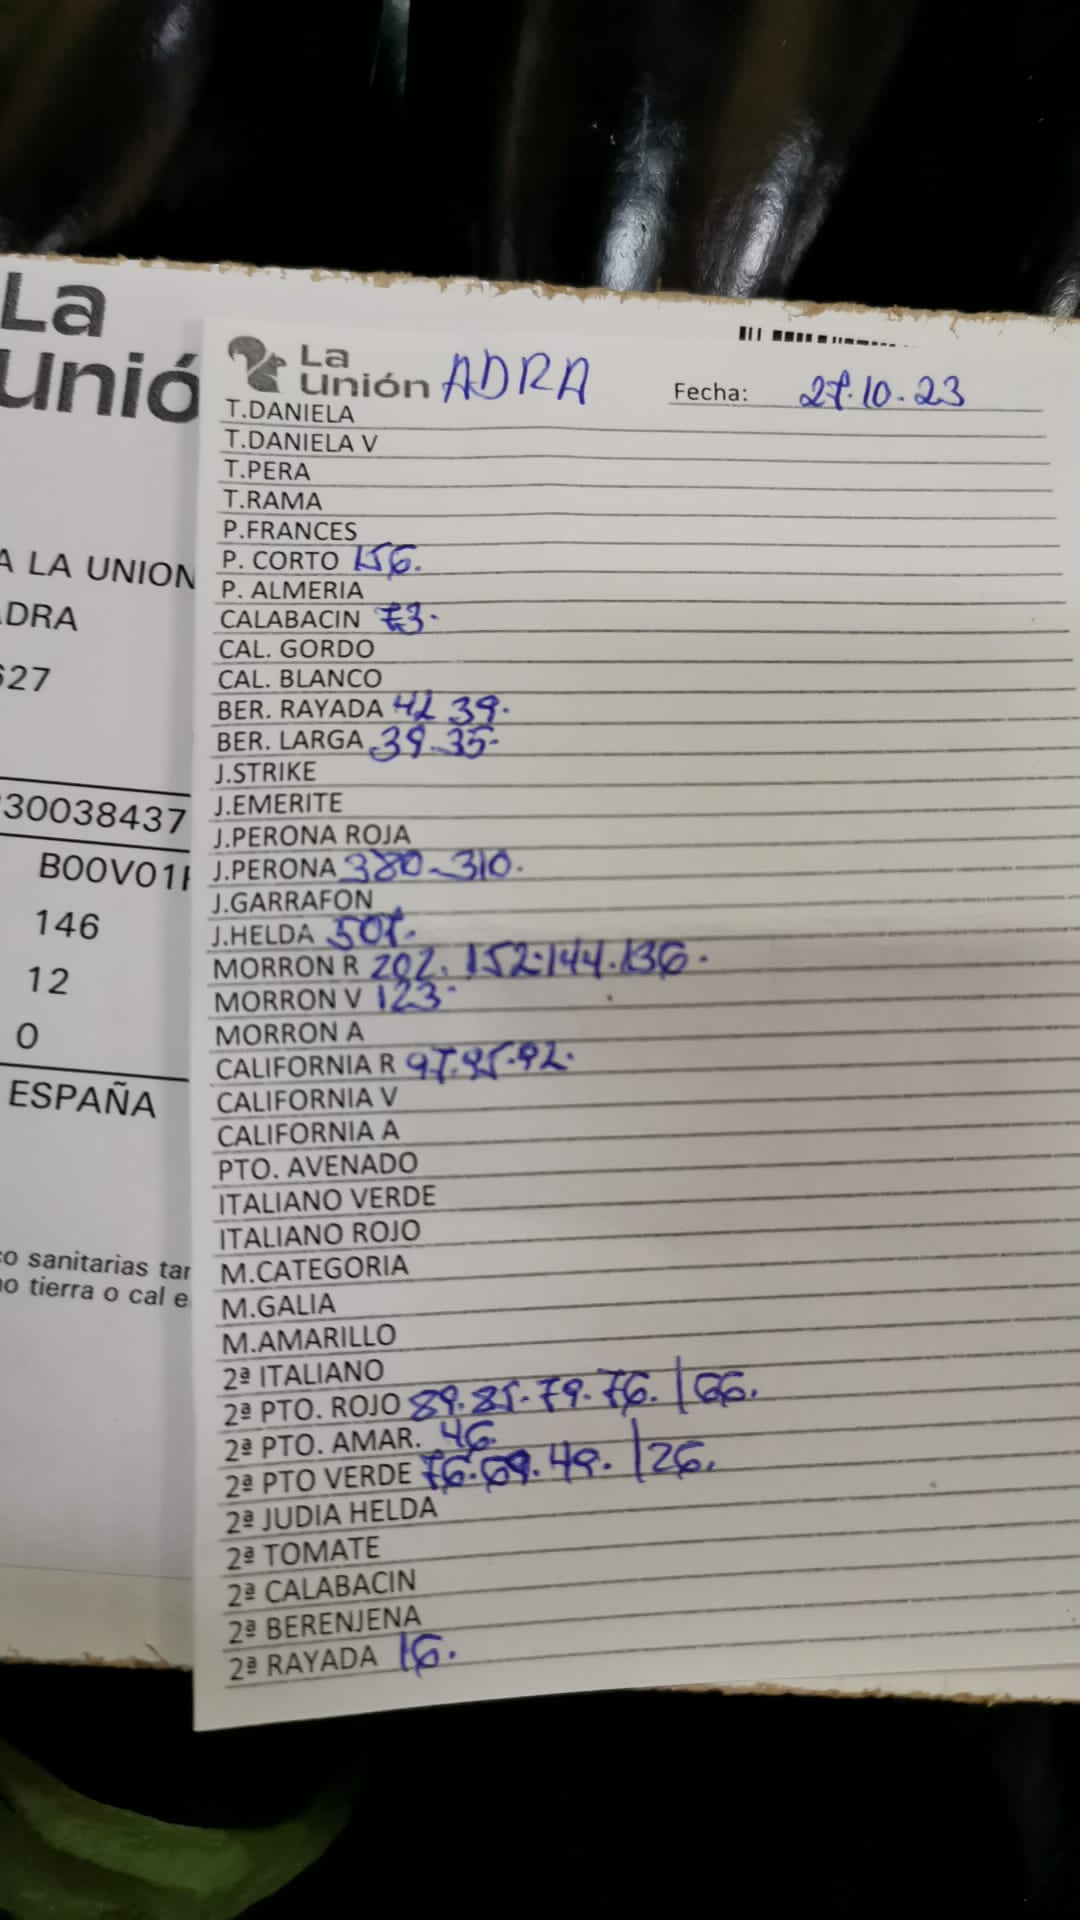 La
Unió
A LA UNION
ADRA
627
30038437
B00V01
146
12
0
ESPAÑA
co sanitarias tar
no tierra o cal e
La
Unión ADRA Fecha: 27.10.23
T.DANIELA
T.DANIELA V
T.PERA
T.RAMA
P.FRANCES
P. CORTO 156.
P. ALMERIA
CALABACIN 73.
CAL. GORDO
CAL. BLANCO
BER. RAYADA 42 39.
BER. LARGA 39.35-
J.STRIKE
J.EMERITE
J.PERONA ROJA
J.PERONA 380-310.
J.GARRAFON
J.HELDA 507.
MORRON R 202. 152.144.136.
MORRON V 123-
MORRON A
CALIFORNIA R 97.95.92.
CALIFORNIA V
CALIFORNIA A
PTO. AVENADO
ITALIANO VERDE
ITALIANO ROJO
M.CATEGORIA
M.GALIA
M.AMARILLO
2ª ITALIANO
2ª PTO. ROJO 89.85.79.76. | 66.
2ª PTO. AMAR. 46.
2ª PTO VERDE 76.69.49. | 26.
2ª JUDIA HELDA
2ª TOMATE
2ª CALABACIN
2ª BERENJENA
2ª RAYADA 16.